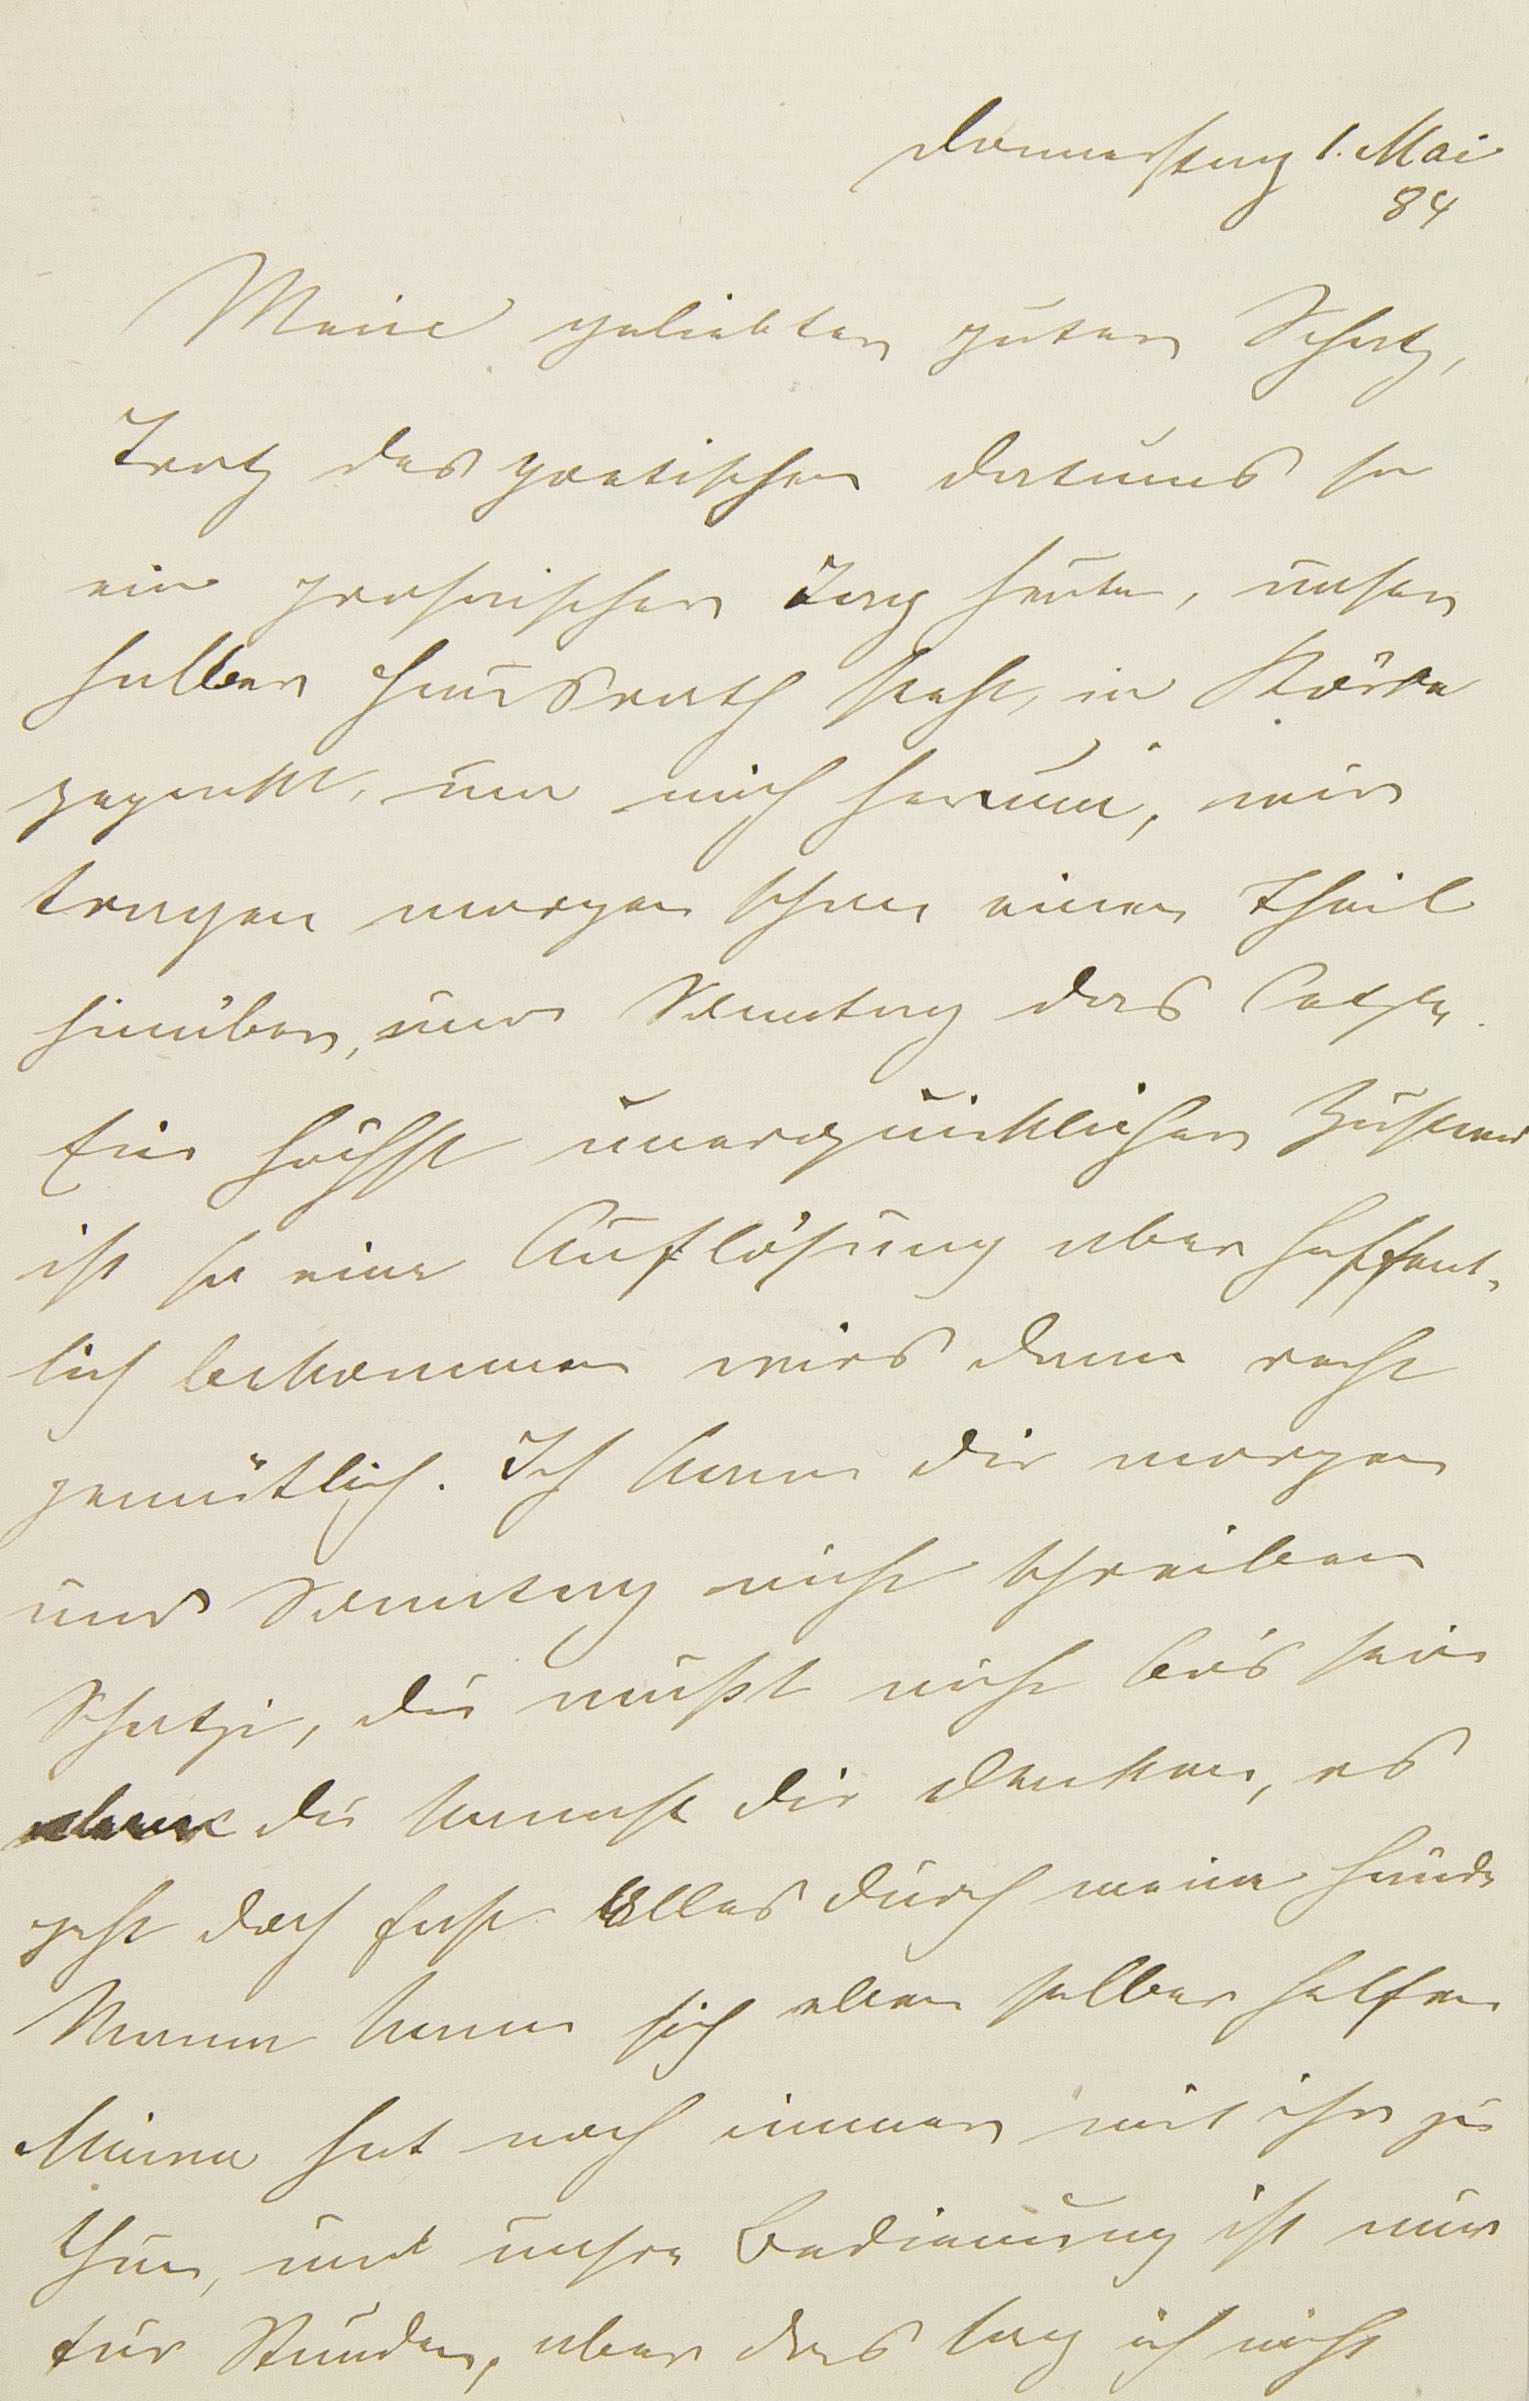 Donnerstag 1. Mai
84
Mein geliebter guter Schatz,
Trotz des poetischen Datums so
ein prosaischer Tag heute, unser
halber Hausrath steht, in Körbe
gepackt, um mich herum, wir
tragen morgen schon einen Theil
hinüber, und Sonntag das Letzte.
Ein höchst unerquicklicher Zustand
ist so eine Auflösung aber hoffent-
lich bekommen wirs dann recht
gemütlich. Ich kann dir morgen
und Sonntag nicht schreiben
Schatzi, du mußt nicht bös sein
du kannst dir denken, es
geht doch fast Alles durch meine Hände
Mama kann sich eben selber helfen
Minna hat noch immer mit ihr zu
thun, und unsre Bedienung ist nur
für Stunden, aber das lag ich nicht